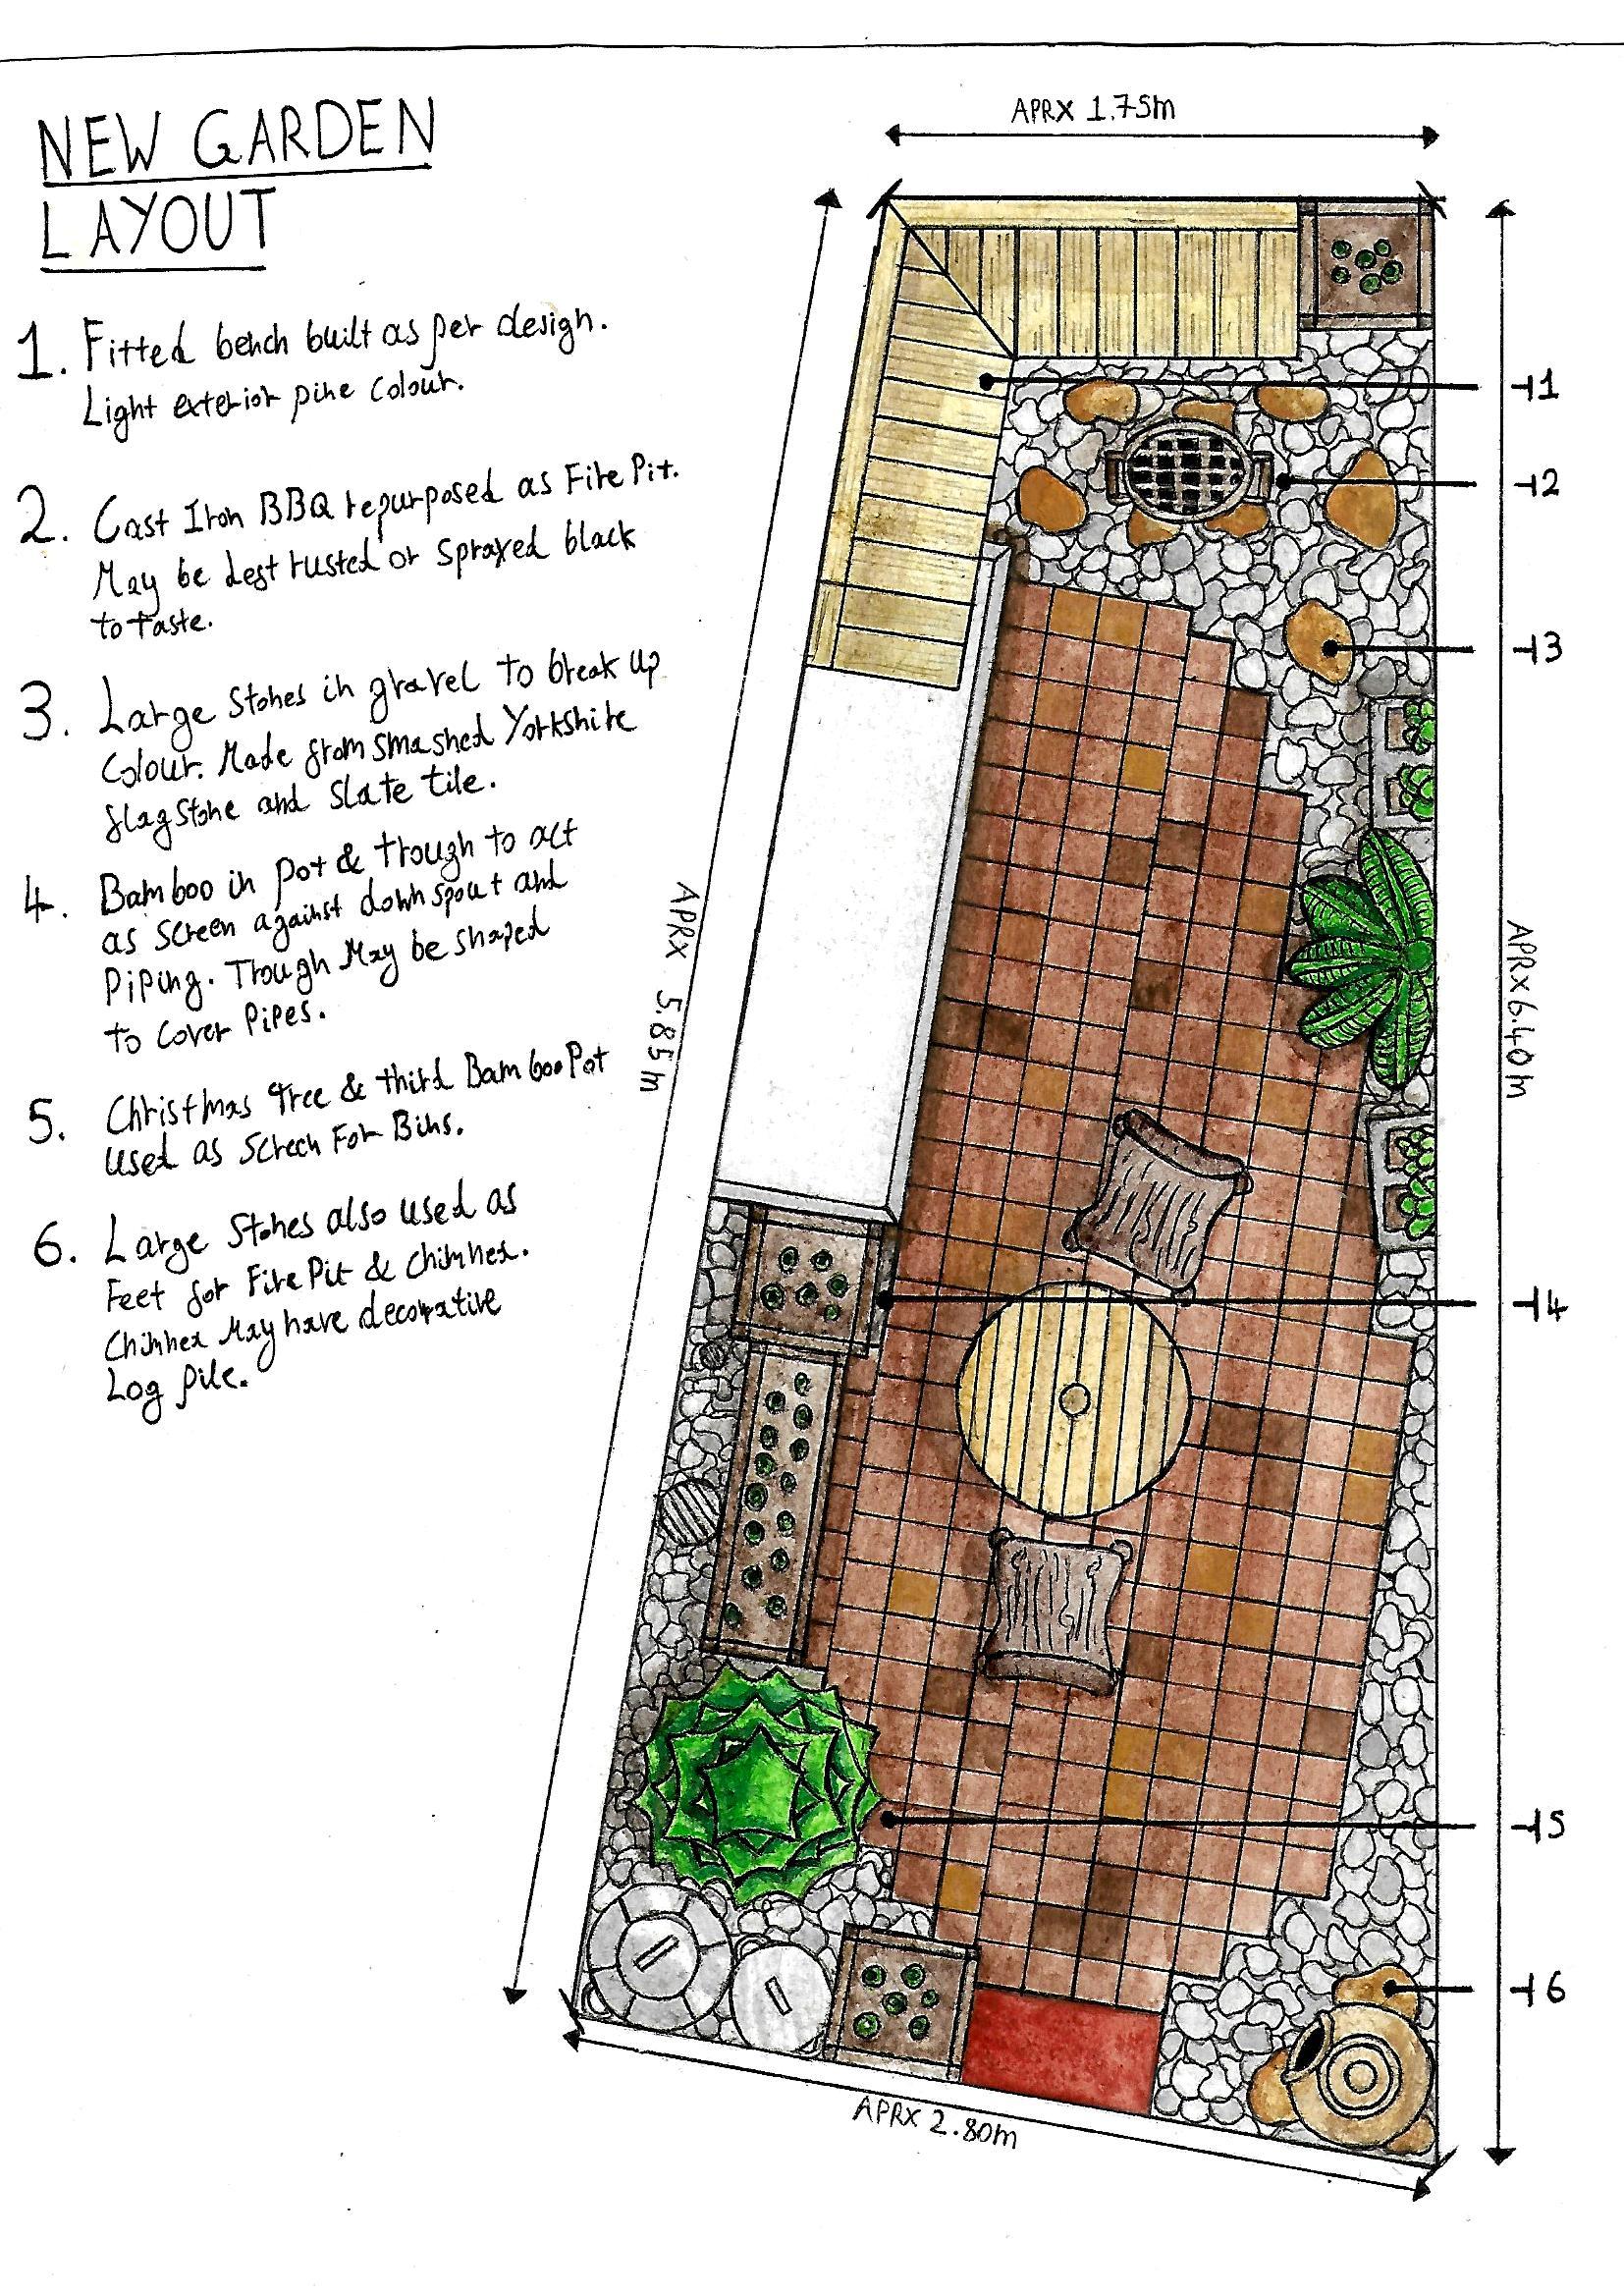 NEW GARDEN
LAYOUT
1. Fitted bench built as per design.
Light exterior pine colour.
2. Cast Iron BBQ repurposed as Fire Pit.
May be lest rusted or sprayed black
to taste.
3. Large stones in gravel to break up
colour. Made from smashed Yorkshire
flagstone and slate tile.
4. Bamboo in pot & trough to act
as screen against downspout and
piping. Trough May be shaped
to cover Pipes.
5. Christmas tree & third Bamboo Pot
used as screen For Bins.
6. Large stones also used as
Feet for Fire Pit & chimnea.
Chimnea May have decorative
Log pile.
APRX 1.75m
APRX 5.85m
APRX 6.40m
APRX 2.80m
1
2
3
4
5
6